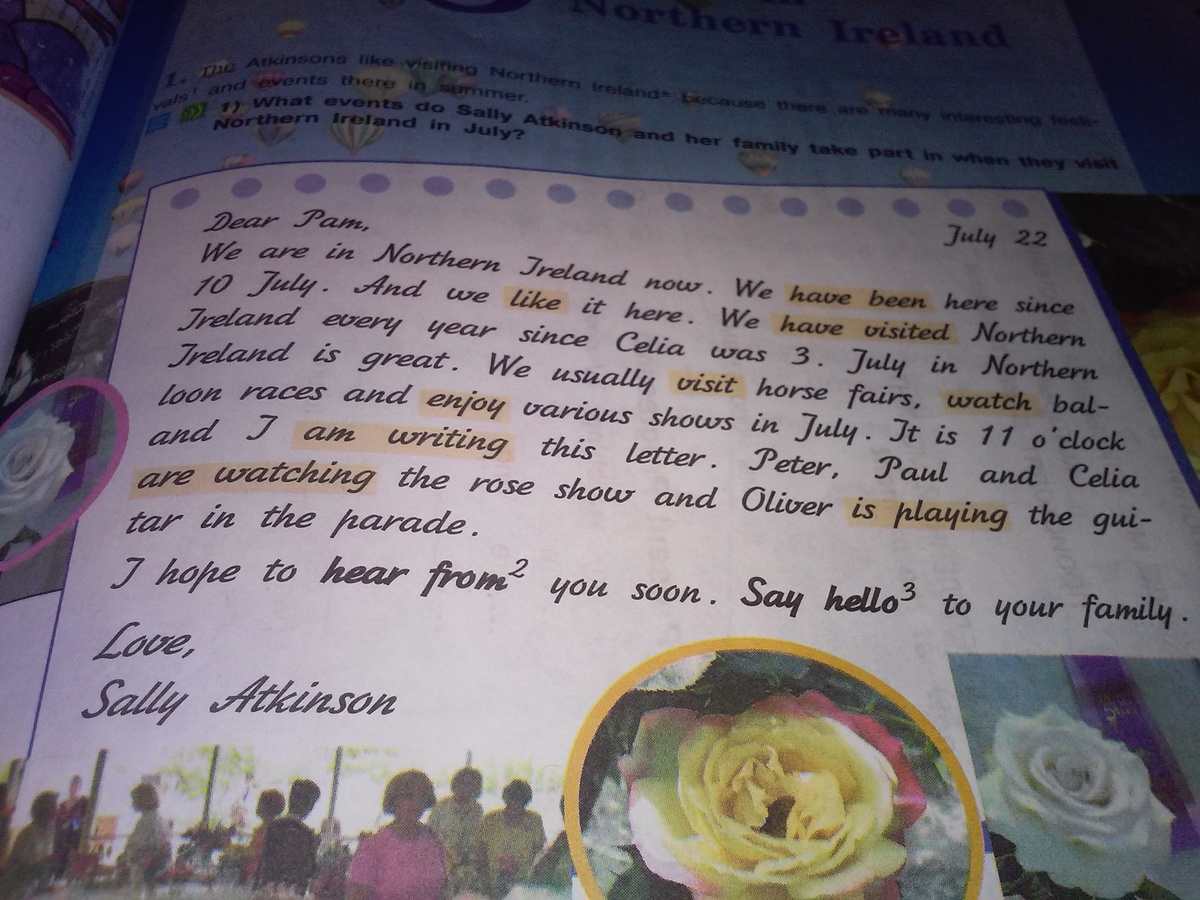 in
Northern Ireland
1. The Atkinsons like visiting Northern Ireland* because there are many interesting festi-
vals¹ and events there in summer.
1) What events do Sally Atkinson and her family take part in when they visit
Northern Ireland in July?
July 22
Dear Pam,
We are in Northern Ireland now. We have been here since
10 July. And we like it here. We have visited Northern
Ireland every year since Celia was 3. July in Northern
Ireland is great. We usually visit horse fairs, watch bal-
loon races and enjoy various shows in July. It is 11 o'clock
and I am writing this letter. Peter, Paul and Celia
are watching the rose show and Oliver is playing the gui-
tar in the parade.
I hope to hear from² you soon. Say hello³ to your family.
Love,
Sally Atkinson